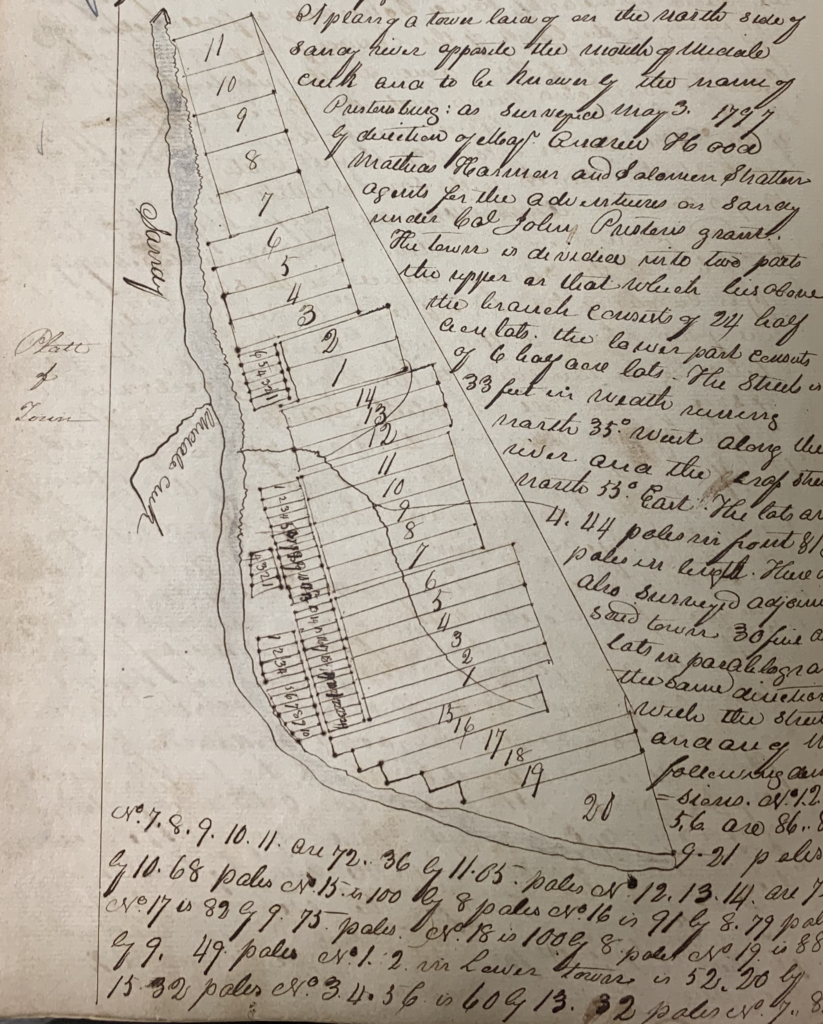 A plan of a town laid of on the north side of
sanday river opposite the mouth of Midale
creek and to be knowen by the name of
Prestonsburg: as surveyed May 3. 1797
by direction of Majr. Andrew Hood
Mathias Harman and Solomon Stratton
agents for the adventurers on Sanday
under Col John Prestons grant.
The town is divided into two parts
the upper or that which lies above
the branch consists of 24 half
acre lots. the lower part consists
of 6 half acre lots. The Street is
33 feet in weath running
north 35° west along the
river and the crop stre
north 55° East. The lots ar
4. 44 poles in front 81
poles in length. There a
also surveyed adjoin
said town 30 five a
lots in paralelogra
the same direction
with the street
and are of th
following dim
=sions. No. 1. 2.
5. 6 are 86..
9. 21 poles
No. 7. 8. 9. 10. 11. are 72.. 36 by 11.05. poles No 12. 13. 14. are 7
by 10. 68 poles No. 15. is 100 by 8 poles No. 16 is 91 by 8. 79 pol
No 17 is 82 by 9. 75 poles. No. 18 is 100 by 8 poles No. 19 is 88
by 9. 49 poles No 1. 2 in Lower town is 52. 20 by
15. 32 poles No 3. 4. 5 6 is 60 by 13. 32 poles No. 7.. 8
Platt
of
Town
Sanday
Midale creek
11
10
9
8
7
6
5
4
3
2
1
14
13
12
11
10
9
8
7
6
5
4
3
2
1
15
16
17
18
19
20